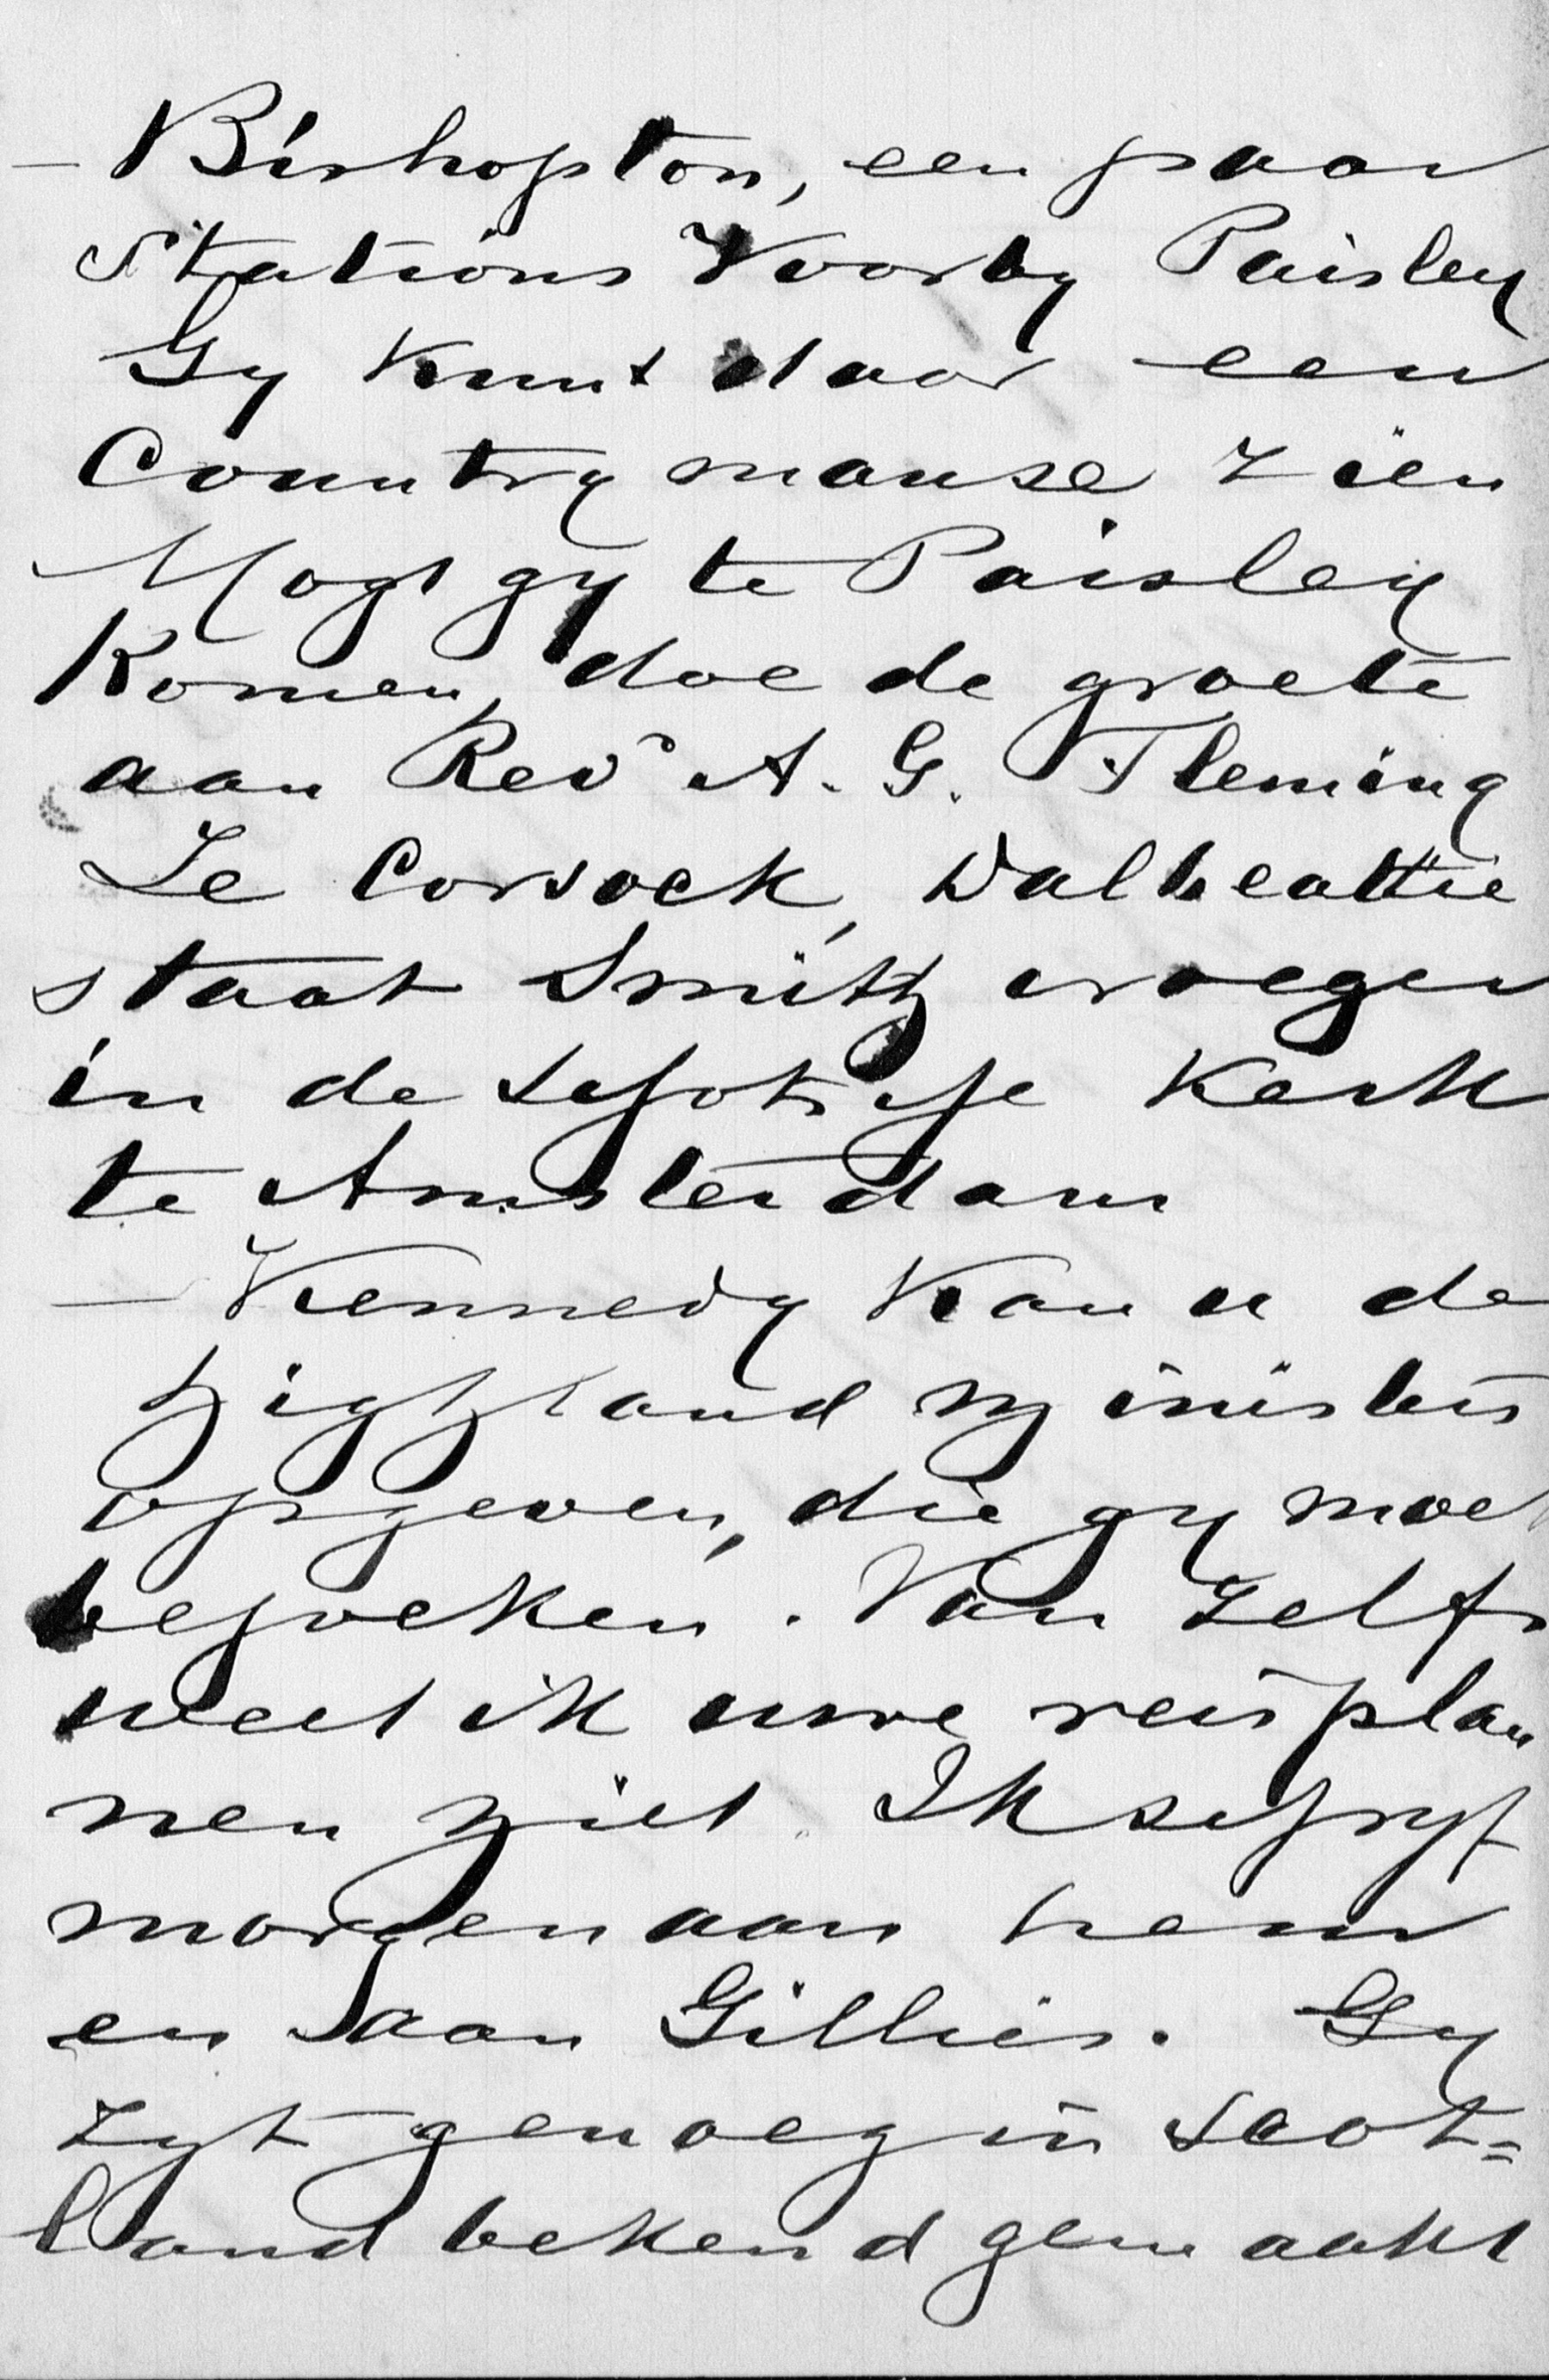 — Bishopton, een paar
Stations Voorby Paisley
Gy Kunt daar een
Country manse zien
Mogt gy te Paisley
Komen, doe de groete
aan Revd A. G. Fleming
Te Corsock, Dalbeattie
staat Smith vroeger
in de schotsche Kerk
te Amsterdam
— Kennedy Kan u de
highland ministers
opgeven, die gy moet
bezoeken. Van Zelfs
weet ik uwe reisplan
nen niet. Ik schryf
morgen aan hem
en aan Gillies. Gy
zyt genoeg in Scot=
land bekend gemaakt